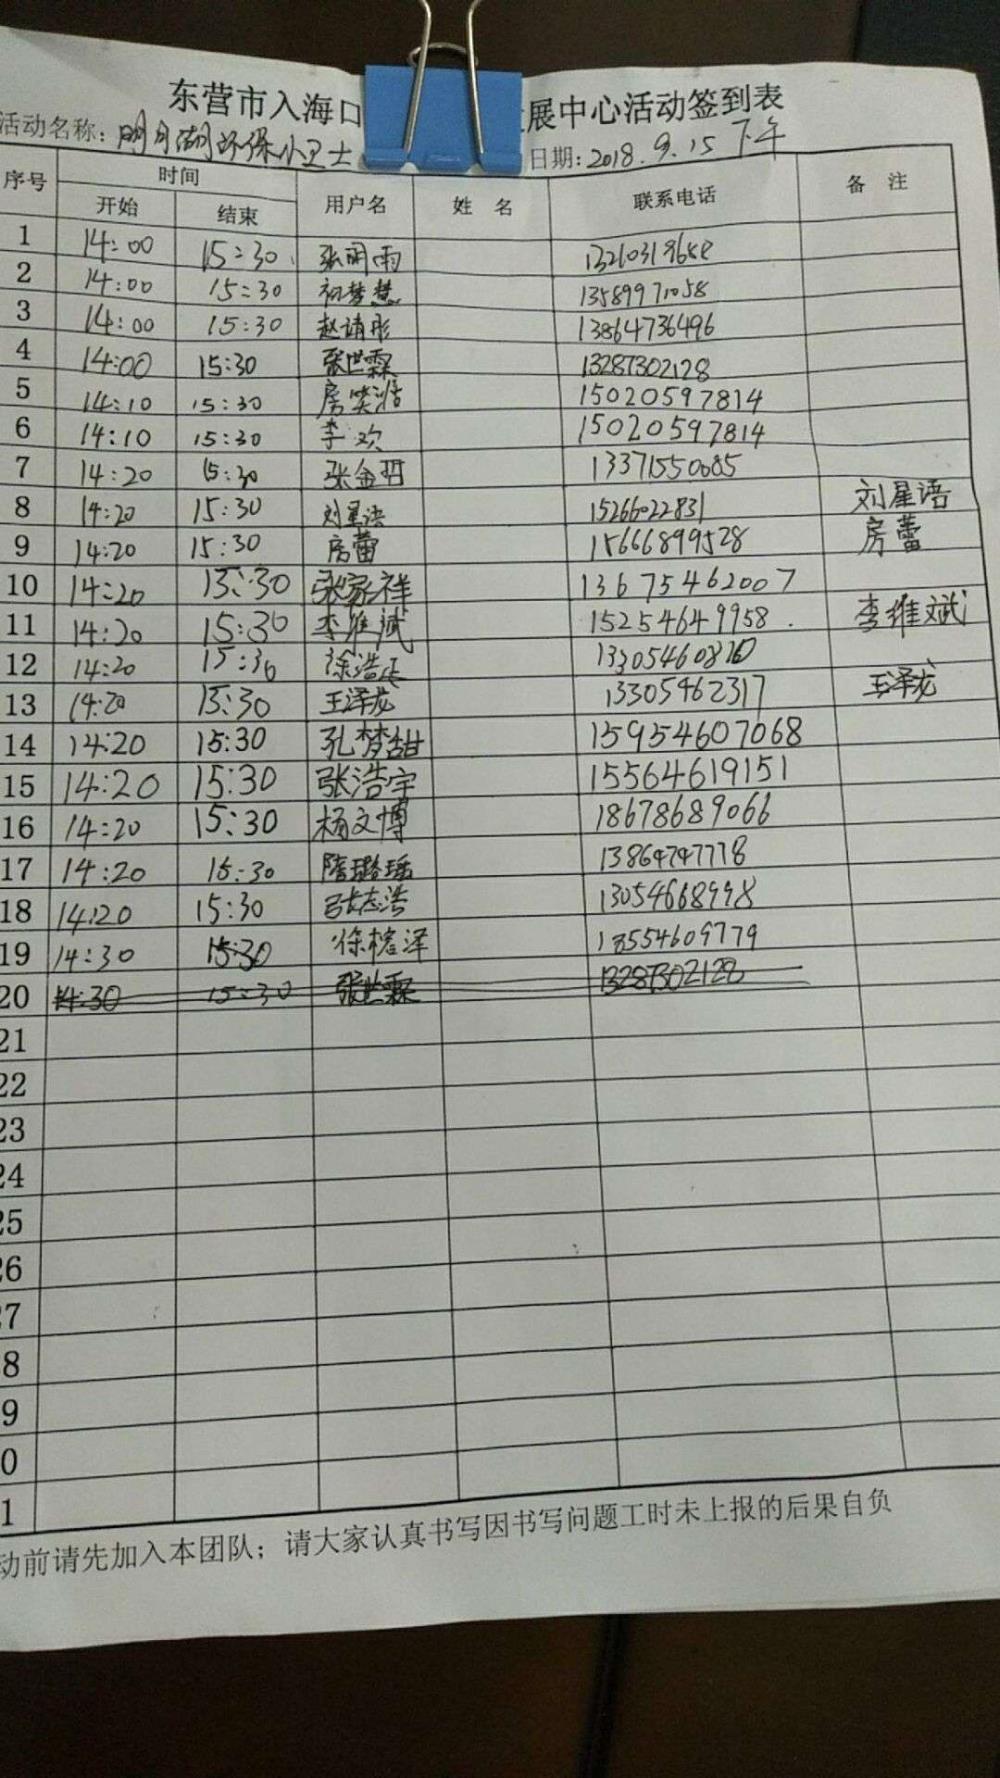 东营市入海口 展中心活动签到表
活动名称：明月湖环保小卫士 日期：2018.9.15 下午
序号 时间 用户名 姓 名 联系电话 备 注
开始 结束
1 14:00 15:30
2 14:00 15:30 祁梦慧
3 14:00 15:30 赵靖彤 13864736496
4 14:00 15:30 张世霖 13287302128
5 14:10 15:30 15020597814
6 14:10 15:30 李欢 15020597814
7 14:20 15:30 张金哲 13371550085
8 14:20 15:30 刘星语 15266022831 刘星语
9 14:20 15:30 房蕾 15666899528 房蕾
10 14:20 15:30 张家祥 13675462007
11 14:20 15:30 李维斌 15254649958. 李维斌
12 14:20 15:30 徐浩
13 14:20 15:30 王泽龙 13305462317 王泽龙
14 14:20 15:30 孔梦甜 15954607068
15 14:20 15:30 张浩宇 15564619151
16 14:20 15:30 杨文博 18678689066
17 14:20 15:30 隋璐瑶 13864747778
18 14:20 15:30 13054668998
19 14:30 15:30 徐榕泽 18554609779
20 14:30 15:30 张世霖 13287302128
21
22
23
24
25
26
27
8
9
0
1
动前请先加入本团队；请大家认真书写因书写问题工时未上报的后果自负